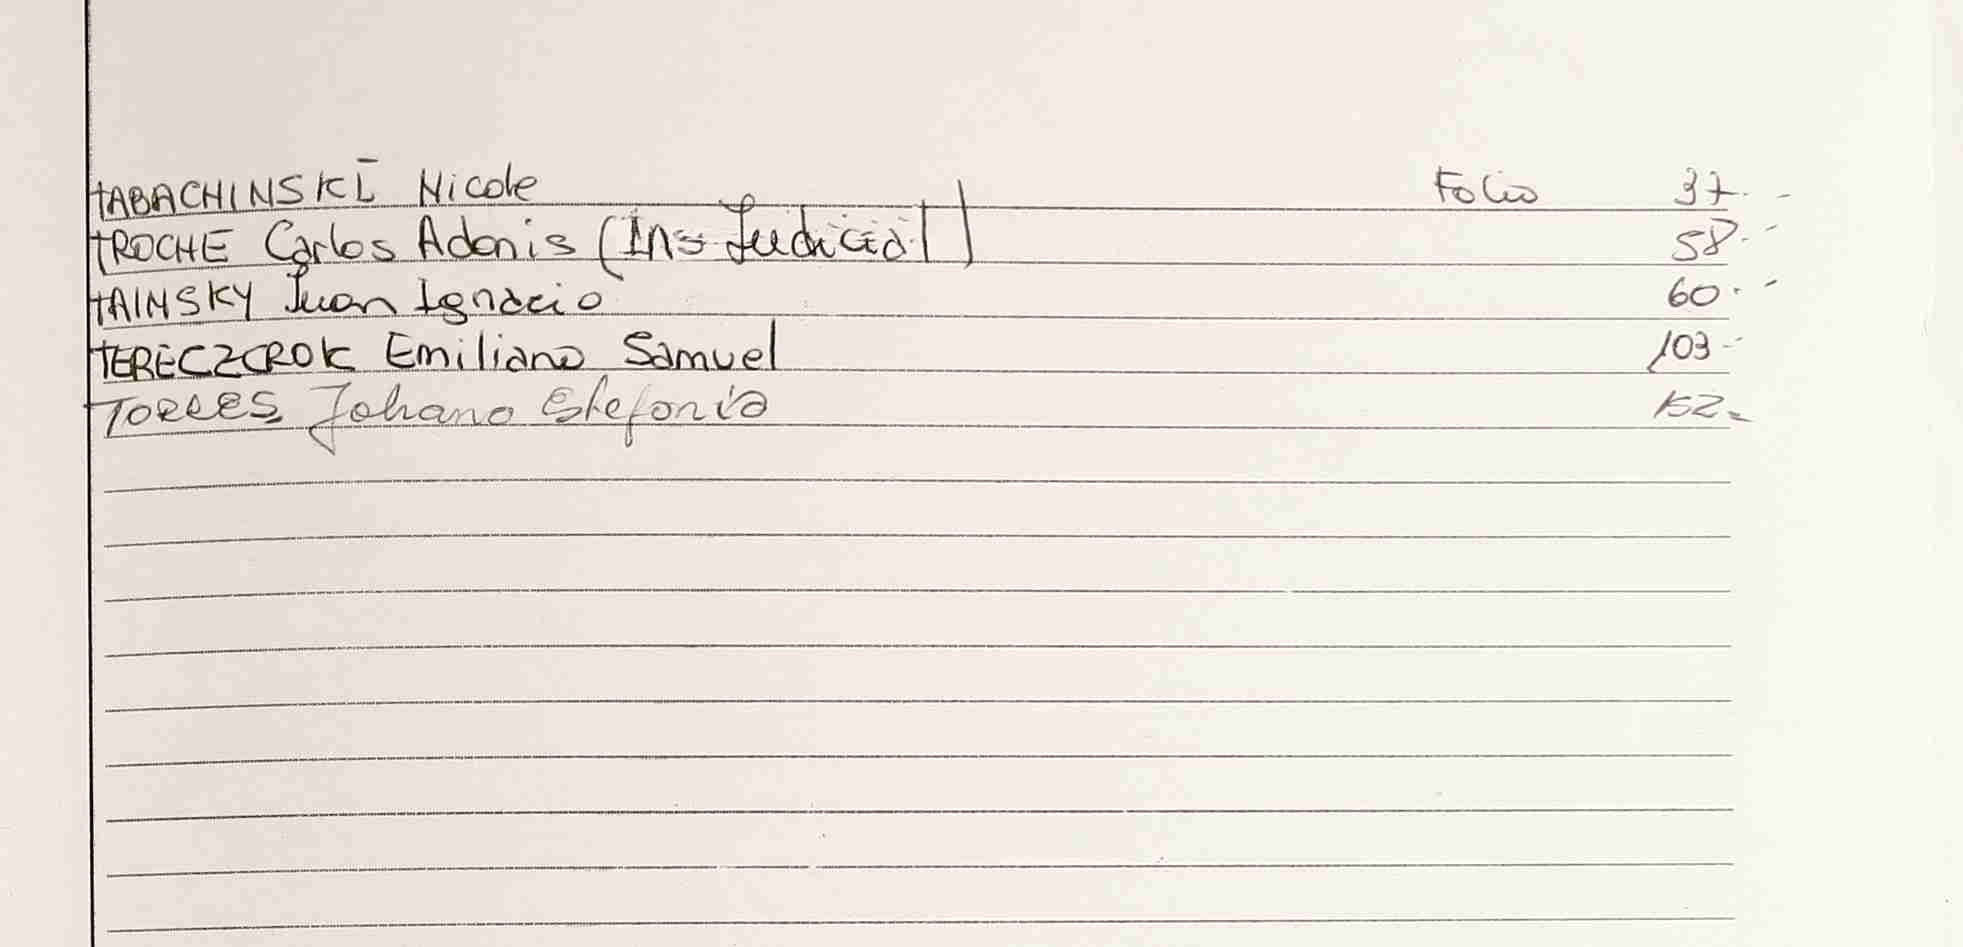 TABACHINSKI Nicole Folio 37.-
TROCHE Carlos Adonis (Ins Judicial) 58.-
TAINSKY Juan Ignacio 60.-
TERECZCROK Emiliano Samuel 103-
TORRES Johana Stefania 152-